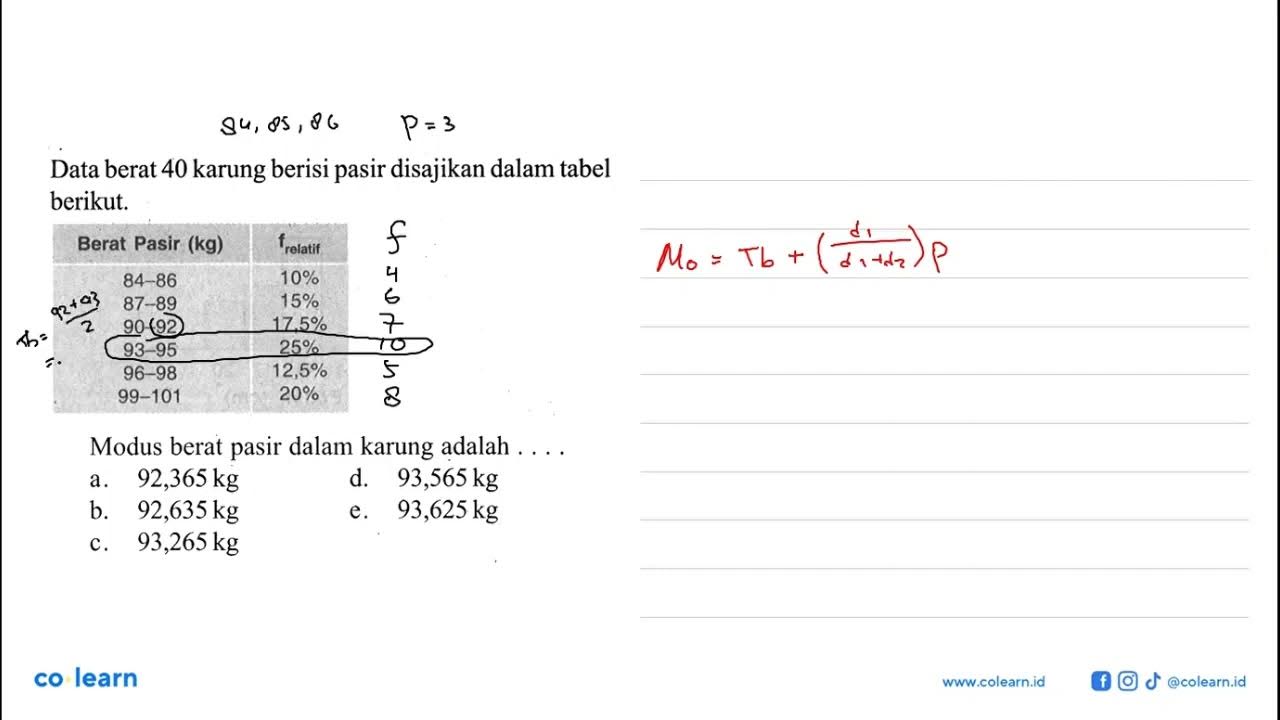 84, 85, 86 p = 3
Data berat 40 karung berisi pasir disajikan dalam tabel
berikut.
Berat Pasir (kg) f relatif f
84–86 10% 4
87–89 15% 6
90–92 17,5% 7
93–95 25% 10
96–98 12,5% 5
99–101 20% 8
Tb = 92+93
2
=
Modus berat pasir dalam karung adalah . . . .
a. 92,365 kg d. 93,565 kg
b. 92,635 kg e. 93,625 kg
c. 93,265 kg
Mo = Tb + (d1 / d1+d2) p
co learn
www.colearn.id @colearn.id